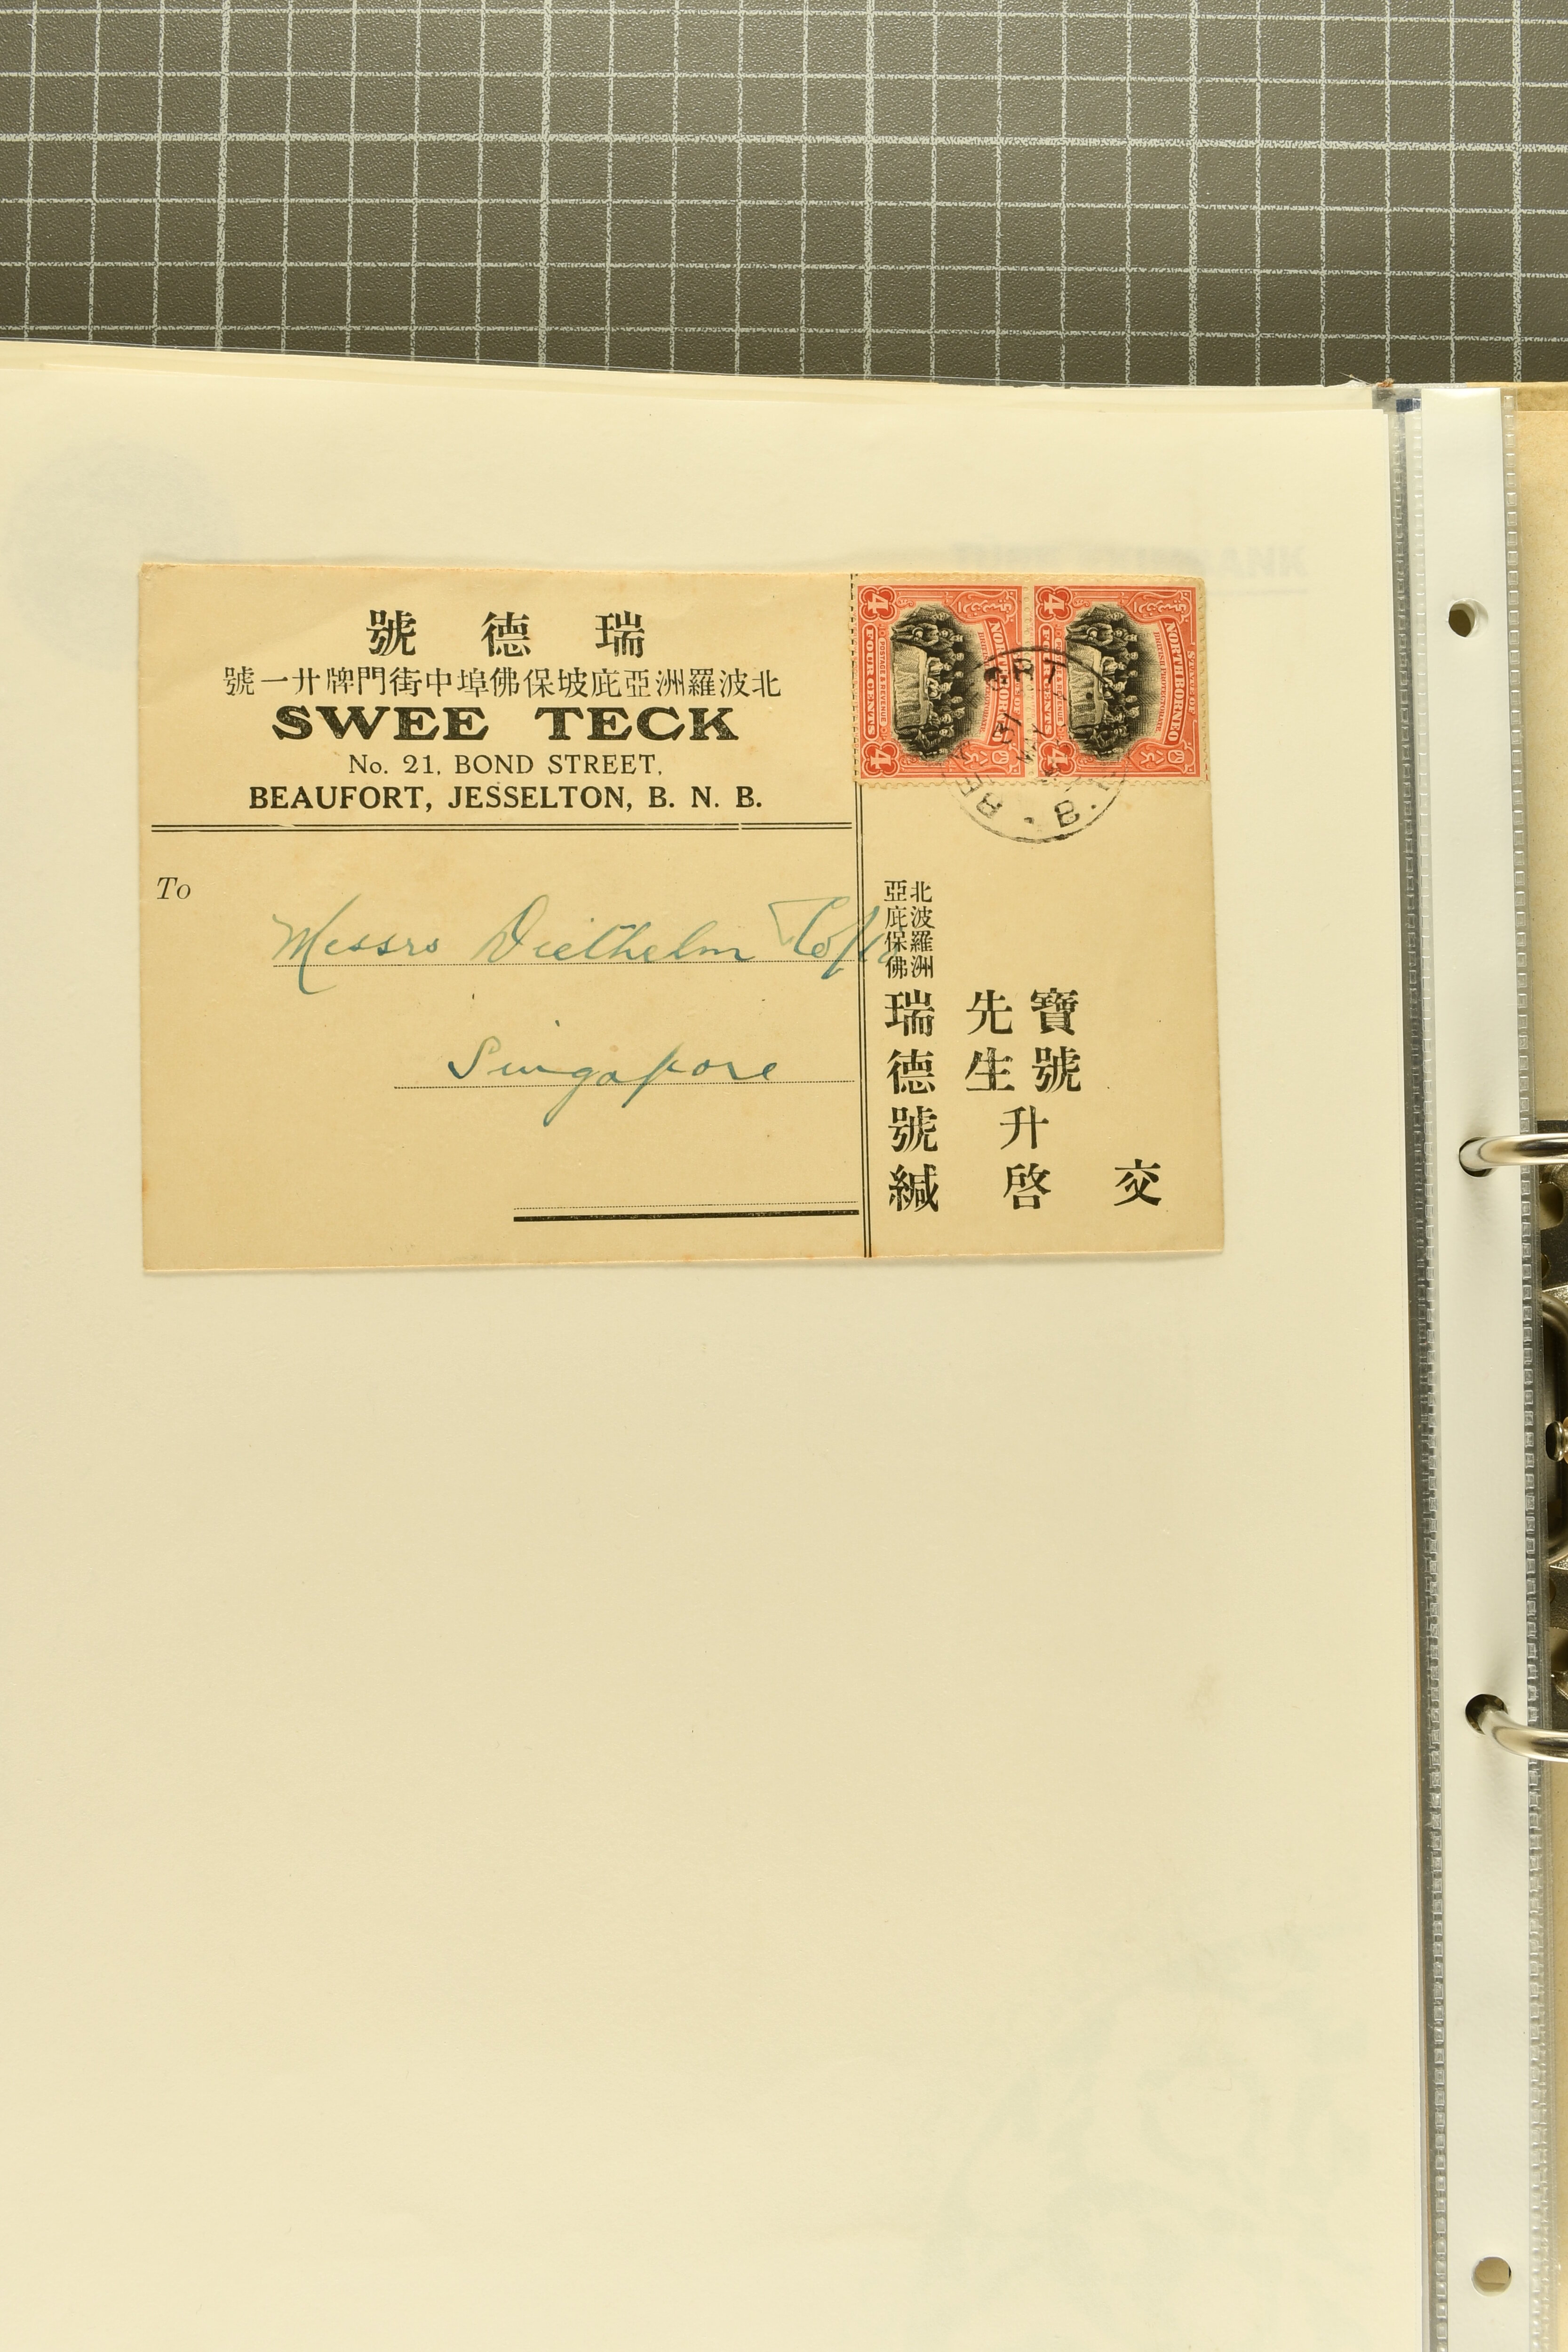 瑞德號
北波羅洲亞庇坡保佛埠中街門牌廿一號
SWEE TECK
No. 21, BOND STREET,
BEAUFORT, JESSELTON, B. N. B.
To
Messrs Diethelm & Co Ltd
Singapore
交
寶號
先生
升啓
北波羅洲
亞庇保佛
瑞德號緘
STATE OF
NORTH BORNEO
BRITISH PROTECTORATE
POSTAGE & REVENUE
FOUR CENTS
4
4
STATE OF
NORTH BORNEO
4
4